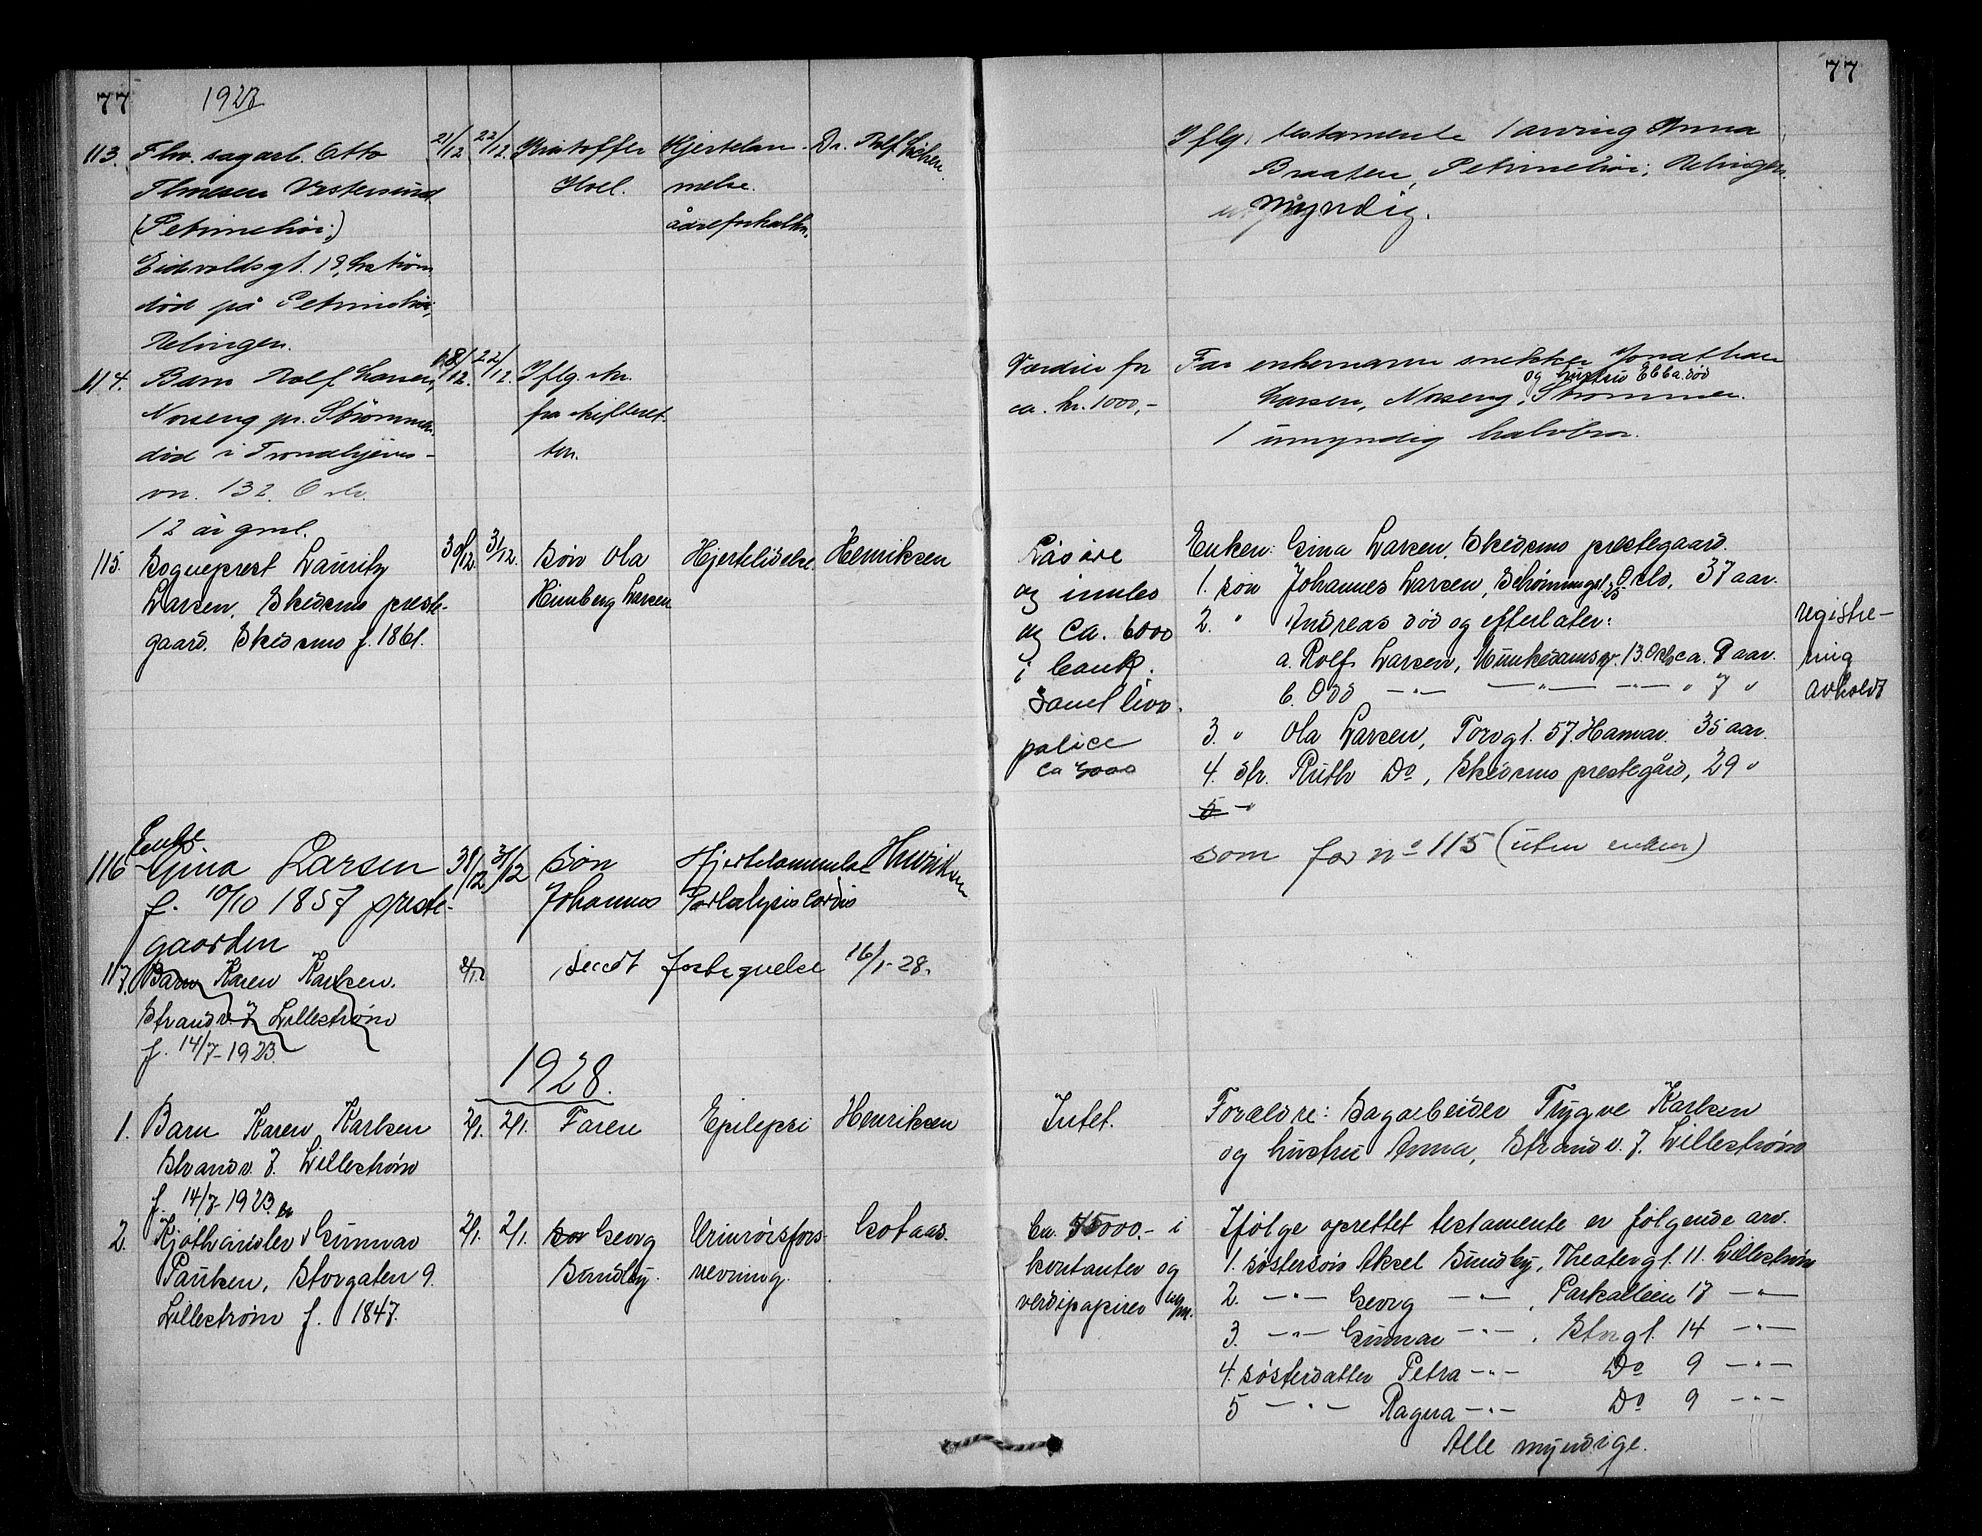 77
1927
113. Fhv. sagarb. Otto 21/12 22/12. Kristoffer Hjertelam- Dr. Rolf
Vestersund Hoel. melse.
(Petrinehøi.) åreforkalkn.
Eidsvoldsgt. 13,
død på Petrinehøi,
Relingen.
114. Barn Rolf Larsen, 18/12. 22/12. Iflg. skr.
Norseng pr. Strømmen. fra skifteret-
død i Trondhjems- ten.
vn. 132. Oslo.
12 år gml.
115. Sogneprest Lauritz 30/12. 31/12. søn Ola Hjertelidelse Henriksen
Larsen, Skedsmo preste- Himberg Larsen
gaard. Skedsmo f. 1861.
Enke.
116 Gina Larsen 31/12 31/12 søn Hjertelammelse Henriksen
f. 10/10 1857 preste- Johannes cordis
gaarden
117. Barn Karen Karlsen. 2/1 sendt fortegnelse 16/1-28.
Strandv. 7 Lillestrøm
f. 14/7-1923.
1928.
1. Barn Karen Karlsen 2/1. 2/1. Faren Epilepsi Henriksen
Strandv. 7. Lillestrøm
f. 14/7-1923.
2. Kjøthandler Gunnar 2/1. 2/1. Georg Urinrørsfors- Gotaas.
Paulsen, Storgaten 9. Sundby. nevring.
Lillestrøm f. 1847.
77
Iflg. testamente 1 arving Anna
Braaten, Petrinehøi, Relingen.
myndig.
Værdier for Far enkemann snekker Jonathan
og hustru Ebba. død
ca. kr. 1000,- Larsen, Norseng, Strømmen.
1 umyndig halvbror.
Løsøre Enken: Gina Larsen, Skedsmo prestegaard.
og innbo 1. søn Johannes Larsen, Schøningsgt. 25 Oslo, 37 aar.
og ca. 6000 2. " Andreas død og efterlater: registre-
i bank. a. Rolf Larsen, Munkedamsv. 13. Oslo ca. 9 aar. ring
samt livs b. Odd —"— —"— —"— " 7 " avholdt
police 3. " Ola Larsen, Torvgt. 57. Hamar. 35 aar.
ca 5000 4. dtr. Ruth Do, Skedsmo prestegård, 29 "
5 "
som for no 115 (uten enken)
Intet. Forældre: Sagarbeider Trygve Karlsen
og hustru Anna, Strandv. 7. Lillestrøm
Ca. 55000.- i Ifølge oprettet testamente er følgende arv.
kontanter og 1. søstersøn Aksel Sundby, Theatergt. 11. Lillestrøm
verdipapirer 2. —"— Georg —"—, Parkalleen 17 —"—
3. —"— Gunnar —"—. Storgt. 14 —"—
4. søsterdatter Petra —"— Do 9 —"—
5 —"— Ragna —"— Do 9 —"—
Alle myndige.